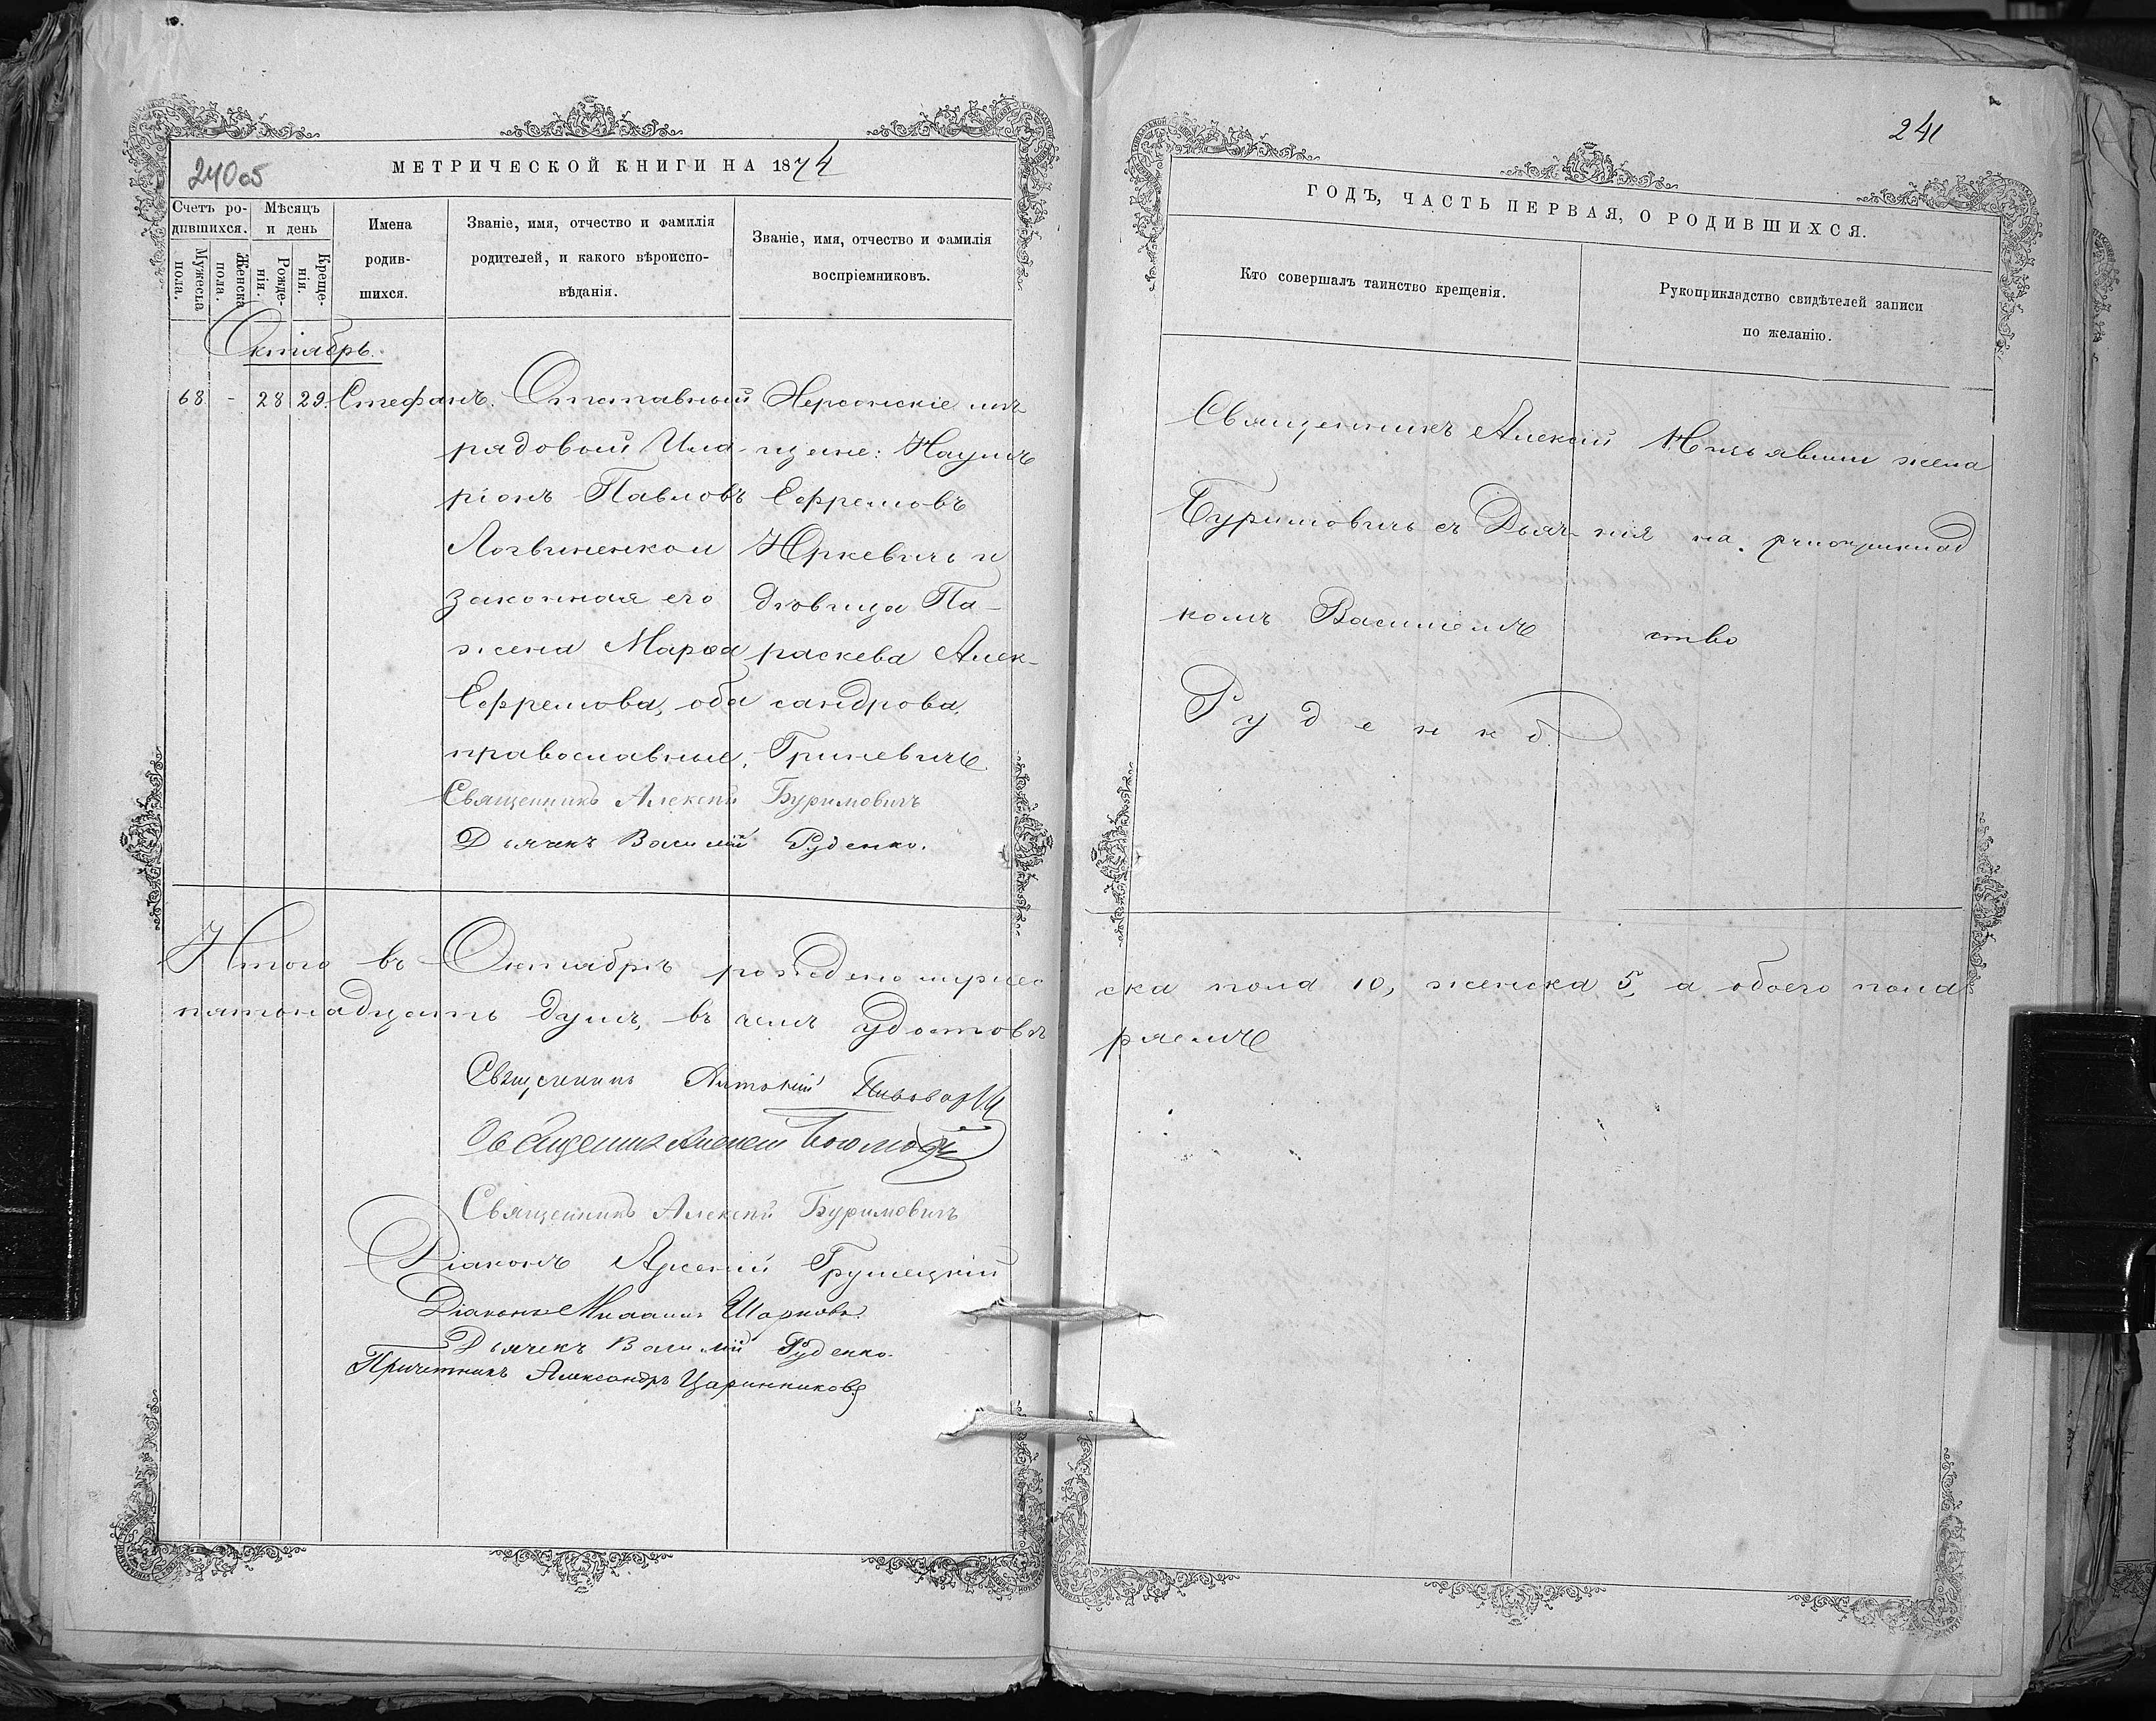 240об
МЕТРИЧЕСКОЙ КНИГИ НА 1874
Счетъ ро-
дившихся.
Мѣсяцъ
и день
Мужеска
пола.
Женска
пола.
Рожде-
нія.
Креще-
нія.
Имена
родив-
шихся.
Званіе, имя, отчество и фамилія
родителей, и какого вѣроиспо-
вѣданія.
Званіе, имя, отчество и фамилія
воспріемниковъ.
Октябрь.
68 - 28 29. Стефанъ.
Отставный
рядовый Ила-
ріонъ Павловъ
Логвиненком
законная его
жена Марѳа
Ефремова, оба
православные.
Херсонскіе мѣ-
щане: Наумъ
Ефремовъ
Юркевичь и
дѣвица Па-
раскева Алек-
сандрова
Гриневичъ
Священникъ Алексѣй Буримовичъ
Дьячекъ Василій Руденко.
Итого въ Октябрѣ рождено мужес
пятонадцать душъ, въ чемъ удостовѣ
Священникъ Антоній
Священникъ Алексѣй
Священникъ Алексѣй Буримовичъ
Діаконъ Арсеній Грушецкій
Діаконъ Михаилъ
Дьячекъ Василій Руденко.
Причетникъ Александръ Царинниковъ
241
ГОДЪ, ЧАСТЬ ПЕРВАЯ, О РОДИВШИХСЯ.
Кто совершалъ таинство крещенія.
Рукоприкладство свидѣтелей записи
по желанію.
Священникъ Алексій
Буримовичь съ Дьяч-
комъ Василіемъ
Руденко.
жела
нія на рукоприклад
ство
ска пола 10, женска 5, а обоего пола
ряемъ